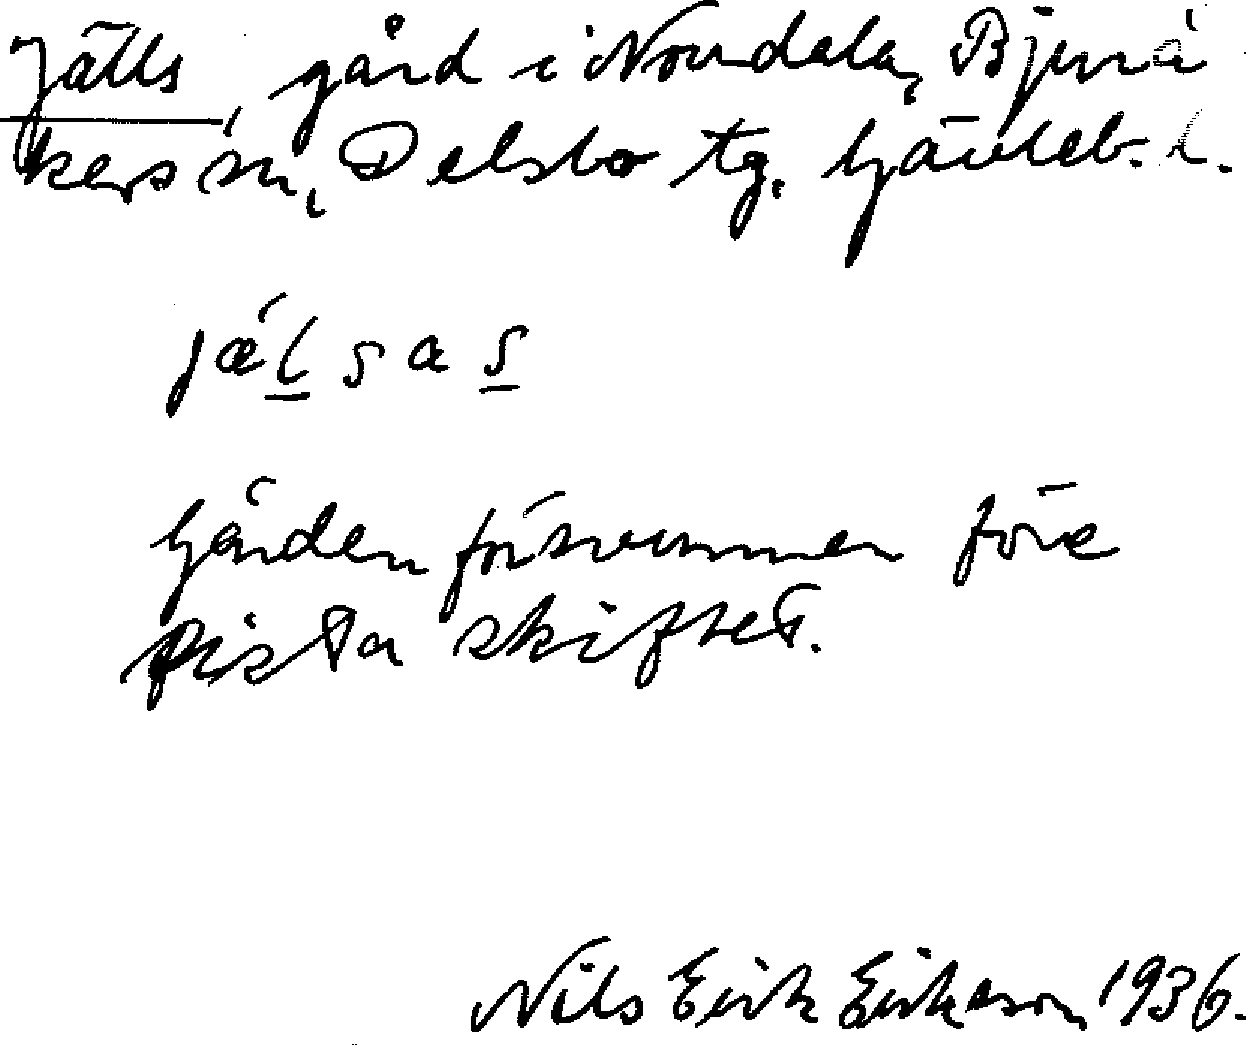 Jälls, gård i Norrdala, Bjurå
kers sn, Delsbo tg. Gävleb. l.
jǽlsas
Gården försvunnen före
sista skiftet.
Nils Erik Eriksson 1936.